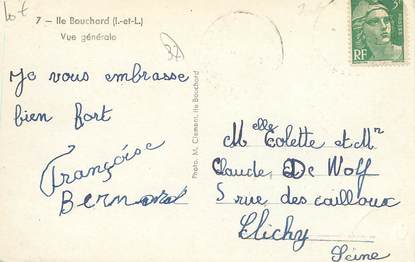 7 — Ile Bouchard (I.-et-L.)
Vue générale
37
Je vous embrasse
bien fort
Françoise
Bernard
Photo. M. Clement, Ile Bouchard
POSTES
RF
Melle Colette et Mr
Claude De Wolf
5 rue des cailloux
Clichy
Seine